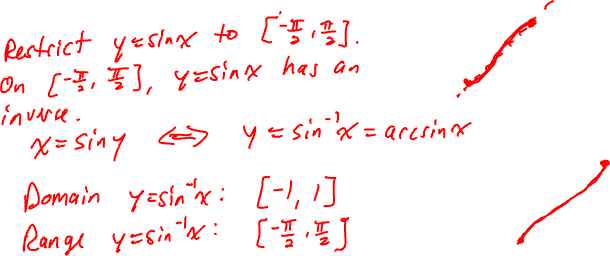 Restrict y = sin x to [-π/2, π/2].
On [-π/2, π/2], y = sin x has an
inverse.
x = sin y ⟺ y = sin⁻¹x = arcsin x
Domain y = sin⁻¹x: [-1, 1]
Range y = sin⁻¹x: [-π/2, π/2]